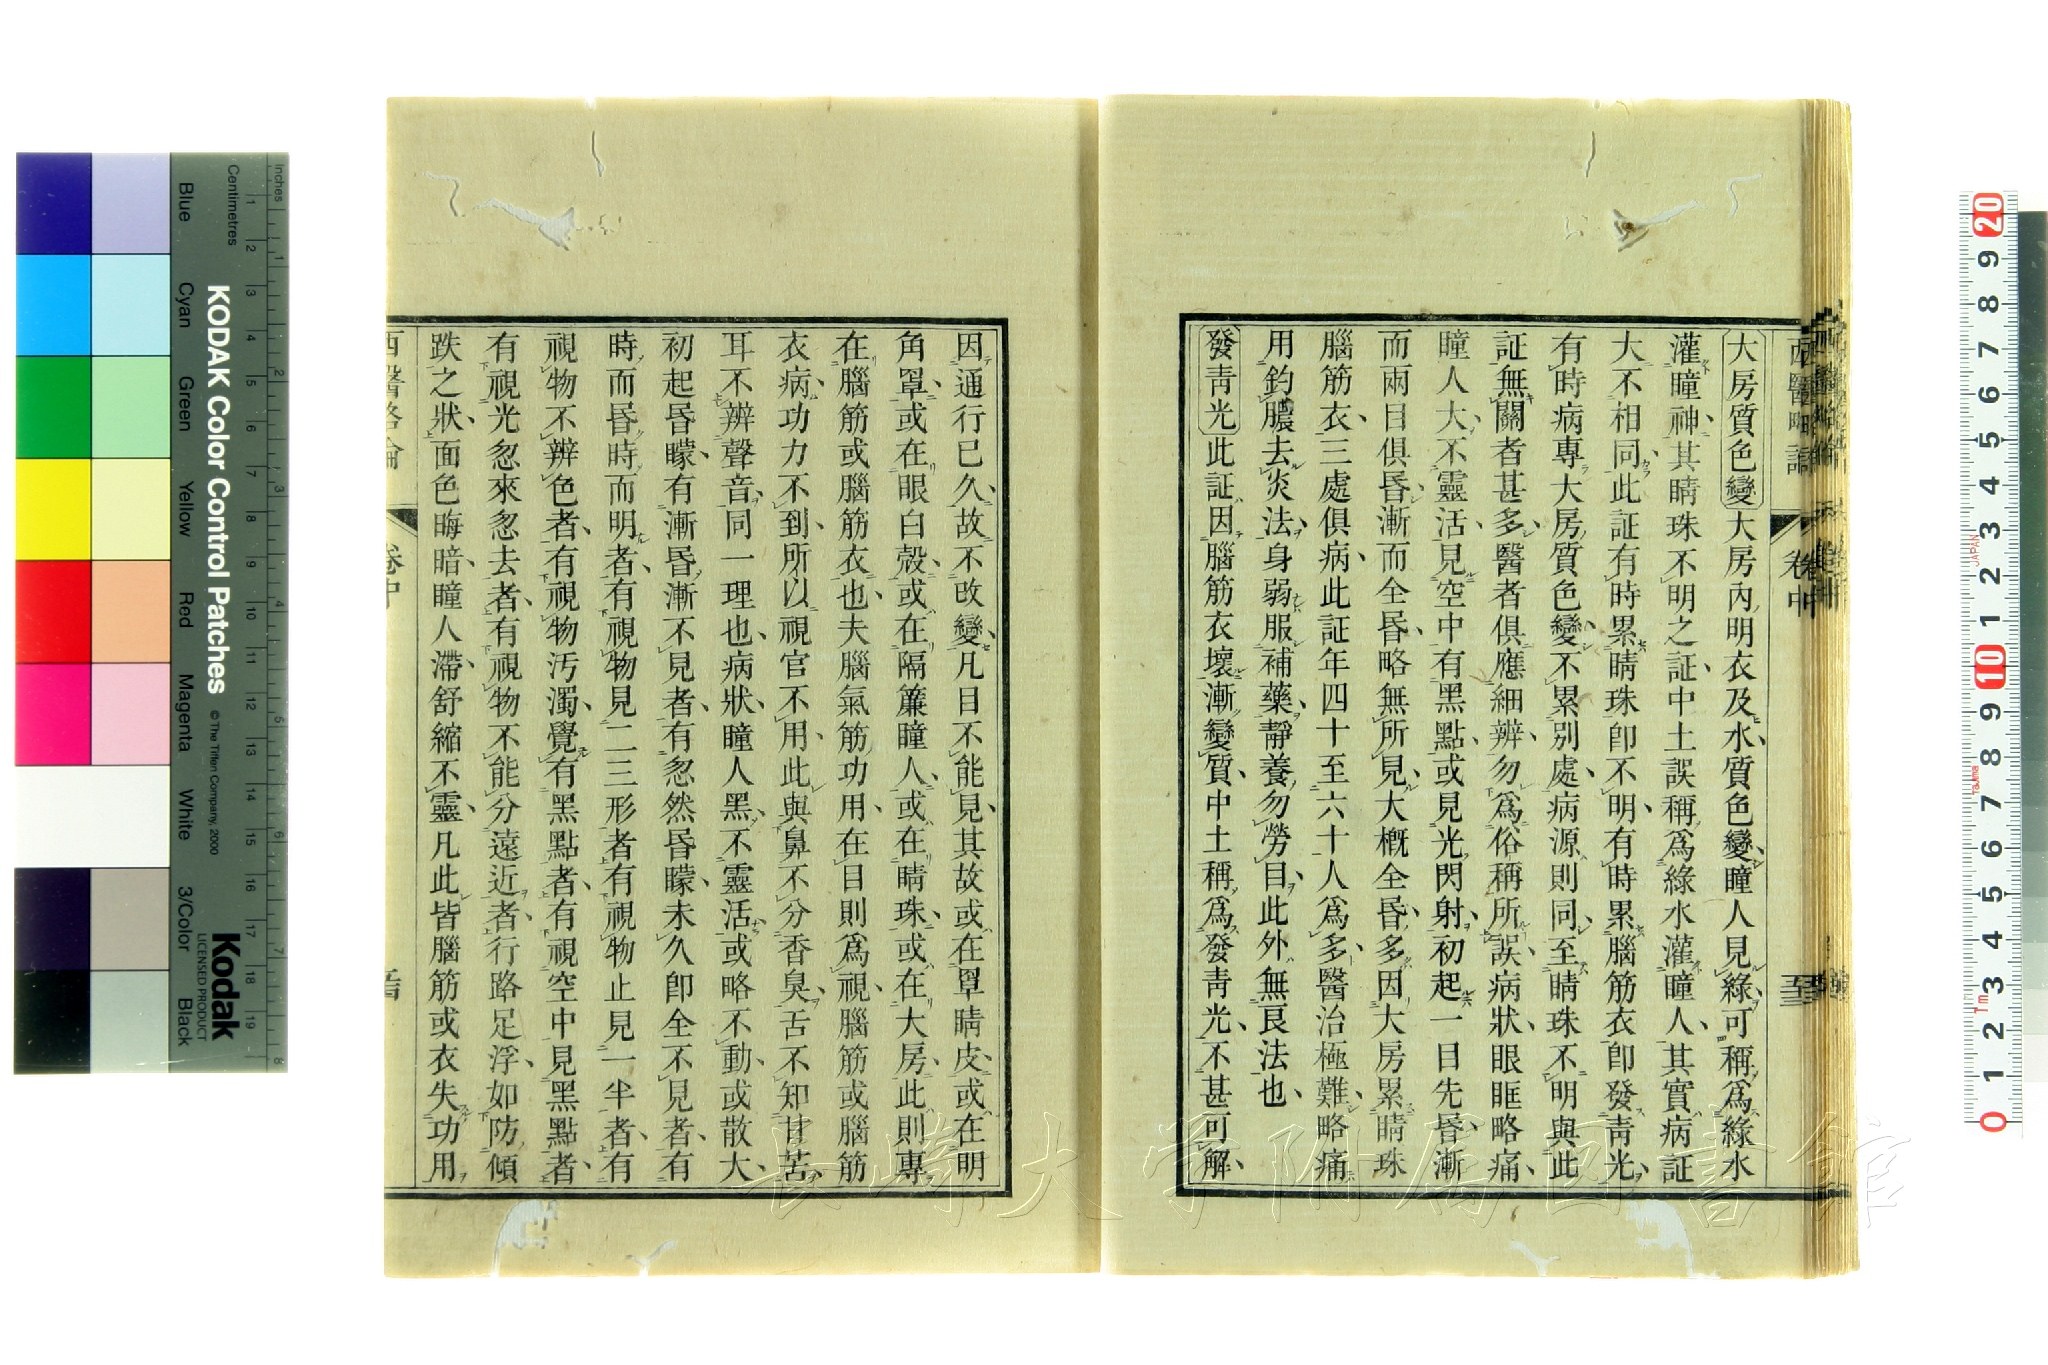 大房質色變大房內明衣及水質色變瞳人見綠可稱為綠水
灌瞳神其睛珠不明之証中土誤稱為綠水灌瞳人其實病証
大不相同此証有時累睛珠卽不明有時累腦筋衣卽發青光
有時病專大房質色變不累別處病源則同至睛珠不明與此
証無關者甚多醫者俱應細辨勿為俗稱所誤病狀眼眶略痛
瞳人大不靈活見空中有黑點或見光閃射初起一目先昏漸
而兩目俱昏漸而全昏略無所見大概全昏多因大房累睛珠
腦筋衣三處俱病此証年四十至六十人為多醫治極難略痛
用釣膿去炎法身弱服補藥靜養勿勞目此外無良法也
發青光此証因腦筋衣壞漸變質中土稱為發青光不甚可解
西醫略論
卷中
至三
因通行已久故不改變凡目不能見其故或在罩睛皮或在明
角罩或在眼白殼或在隔簾瞳人或在睛珠或在大房此則專
在腦筋或腦筋衣也夫腦氣筋功用在目則為視腦筋或腦筋
衣病功力不到所以視官不用此與鼻不分香臭舌不知甘苦
耳不辨聲音同一理也病狀瞳人黑不靈活或略不動或散大
初起昏矇有漸昏漸不見者有忽然昏矇未久卽全不見者有
時而昏時而明者有視物見二三形者有視物止見一半者有
視物不辨色者有視物汚濁覺有黑點者有視空中見黑點者
有視光忽來忽去者有視物不能分遠近者行路足浮如防傾
跌之狀面色晦暗瞳人滯舒縮不靈凡此皆腦筋或衣失功用
西醫略論
卷中
KODAK Color Control Patches
© The Tiffen Company, 2000
Kodak
LICENSED PRODUCT
Inches
Centimetres
Blue
Cyan
Green
Yellow
Red
Magenta
White
3/Color
Black
長崎大学附属図書館